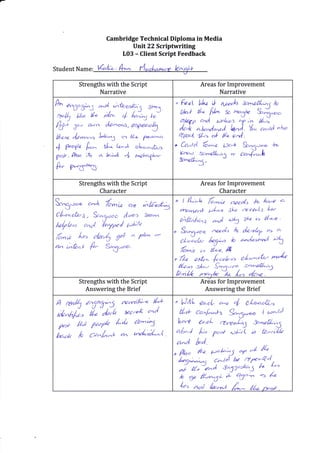 Cambridge Technical Diploma in Media
Unit 22 Scriptwriting
L03 – Client Script Feedback
Student Name:
Strengths with the Script
Narrative
Areas for Improvement
Narrative
An engaging and interesting story
really like the idea of having to
fight your own demons, especially
these demons being in the persona
of people from the lead characters
past. Also it's a kind of metaphor
for purgatory
• Feel like it needs something to
start the film so maybe Sanguoc
and wakes up in this
dark abandoned You could also
this at the end.
• Could Tomie want Sanguoc to
know something or confront
something.
Strengths with the Script
Character
Areas for Improvement
Character
Sanguoc and Tomie are interesting
characters, Sanguoc does seem
helpless and trapped whilst
Tomie has clearly got a plan or
an interest for Sanguoc
• I think Tomie needs to have a
moment where she reveals her
intentions and why she is there.
• Sanguoc needs to develop as a
character begins to understand why
Tomie is there.
• The
them show Sanguoc something
terrible maybe he has done.
Strengths with the Script
Answering the Brief
Areas for Improvement
Answering the Brief
A really engaging narrative that
identifies the dark secret and
past that people hide coming
back to confront an individual.
• With each one of characters
that confronts Sanguoc I would
have each revealing something
about his past which is terrible
and bad.
• Also the waking up at the
beginning could be repeated
at the end suggesting he has
to go through it again as he
has not learned from the past